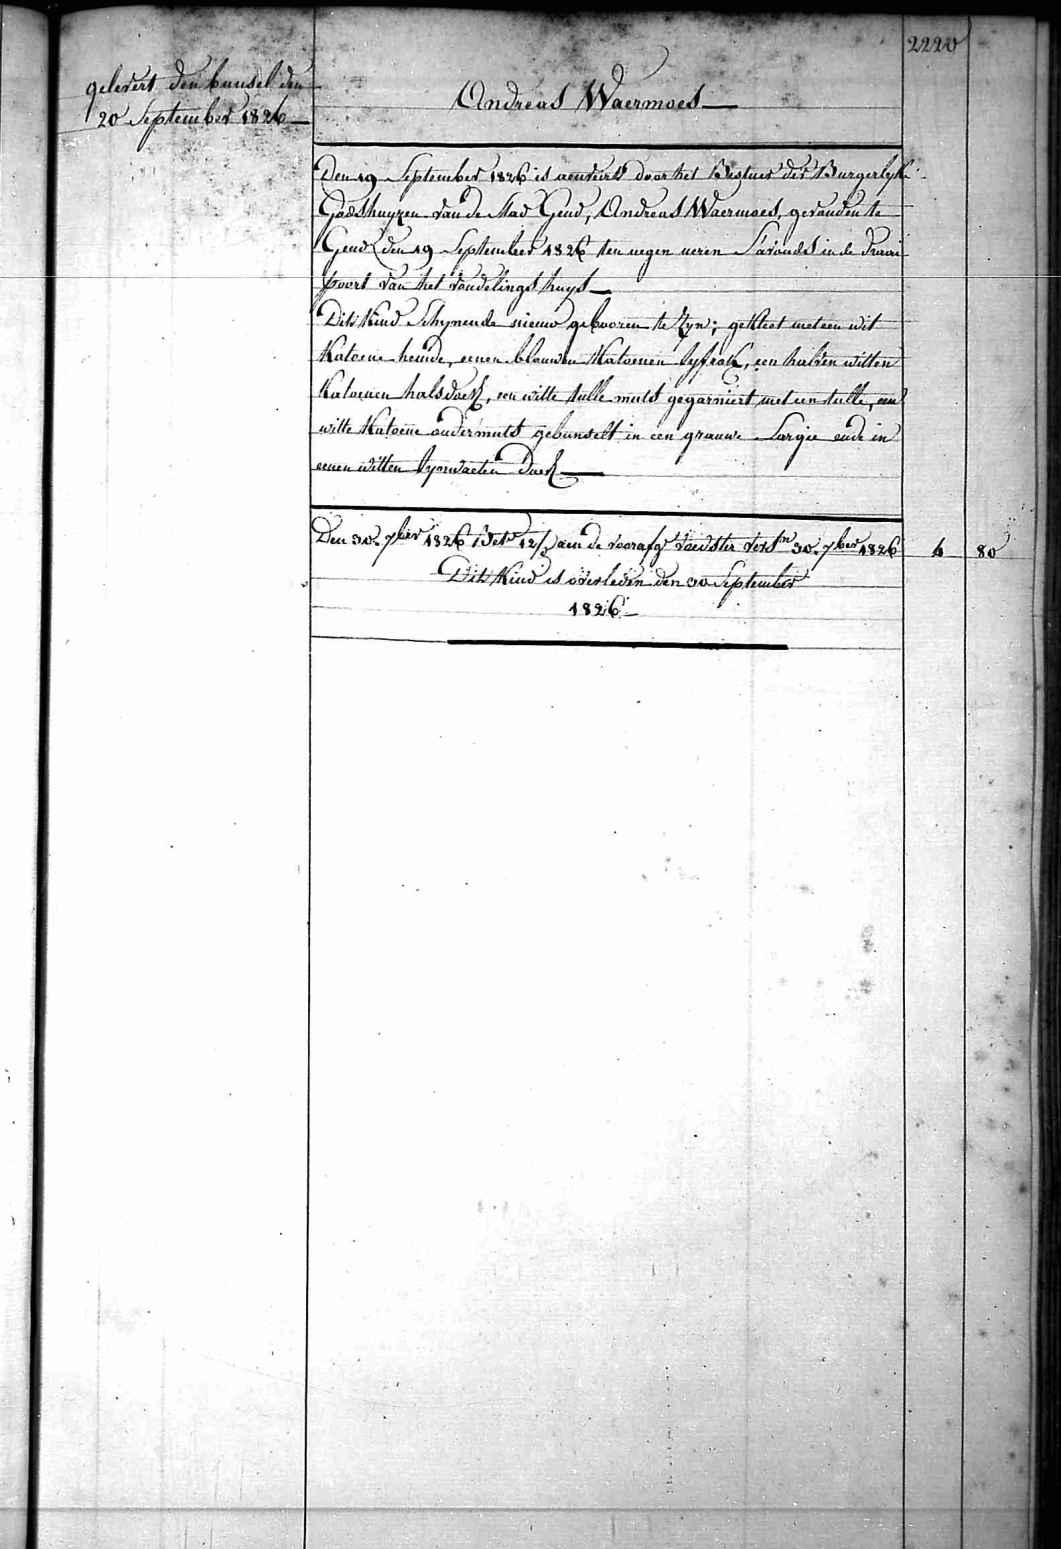 2220
gelevert den bunsel den
20 September 1826 —
Andreas Waermoes —
Den 19 September 1826 is aenveird door het Bestuer der Burgerlyke
Godshuyzen van de Stad Gend, Andreas Waermoes, gevonden te
Gend den 19 September 1826 ten negen ueren S'avonds in de draai
poort van het vondelings huys —
Dit Kind Schynende nieuw gebooren te Zyn; gekleet met een wit
Katoene hemde, eenen blauwen Katoenen lyfrok, een halven witten
Katoenen halsdoek, een witte tulle muts gegarniert met een tulle, een
witte Katoene ondermuts gebunselt in een grauwe Sargie ende in
eenen witten lynwaeten Doek —
Den 30. 7ber 1826 Bet. 12/ aen de voorafg voedster vers 30. 7ber 1826 6 80
Dit Kind is overleden den 30 September
1826 —